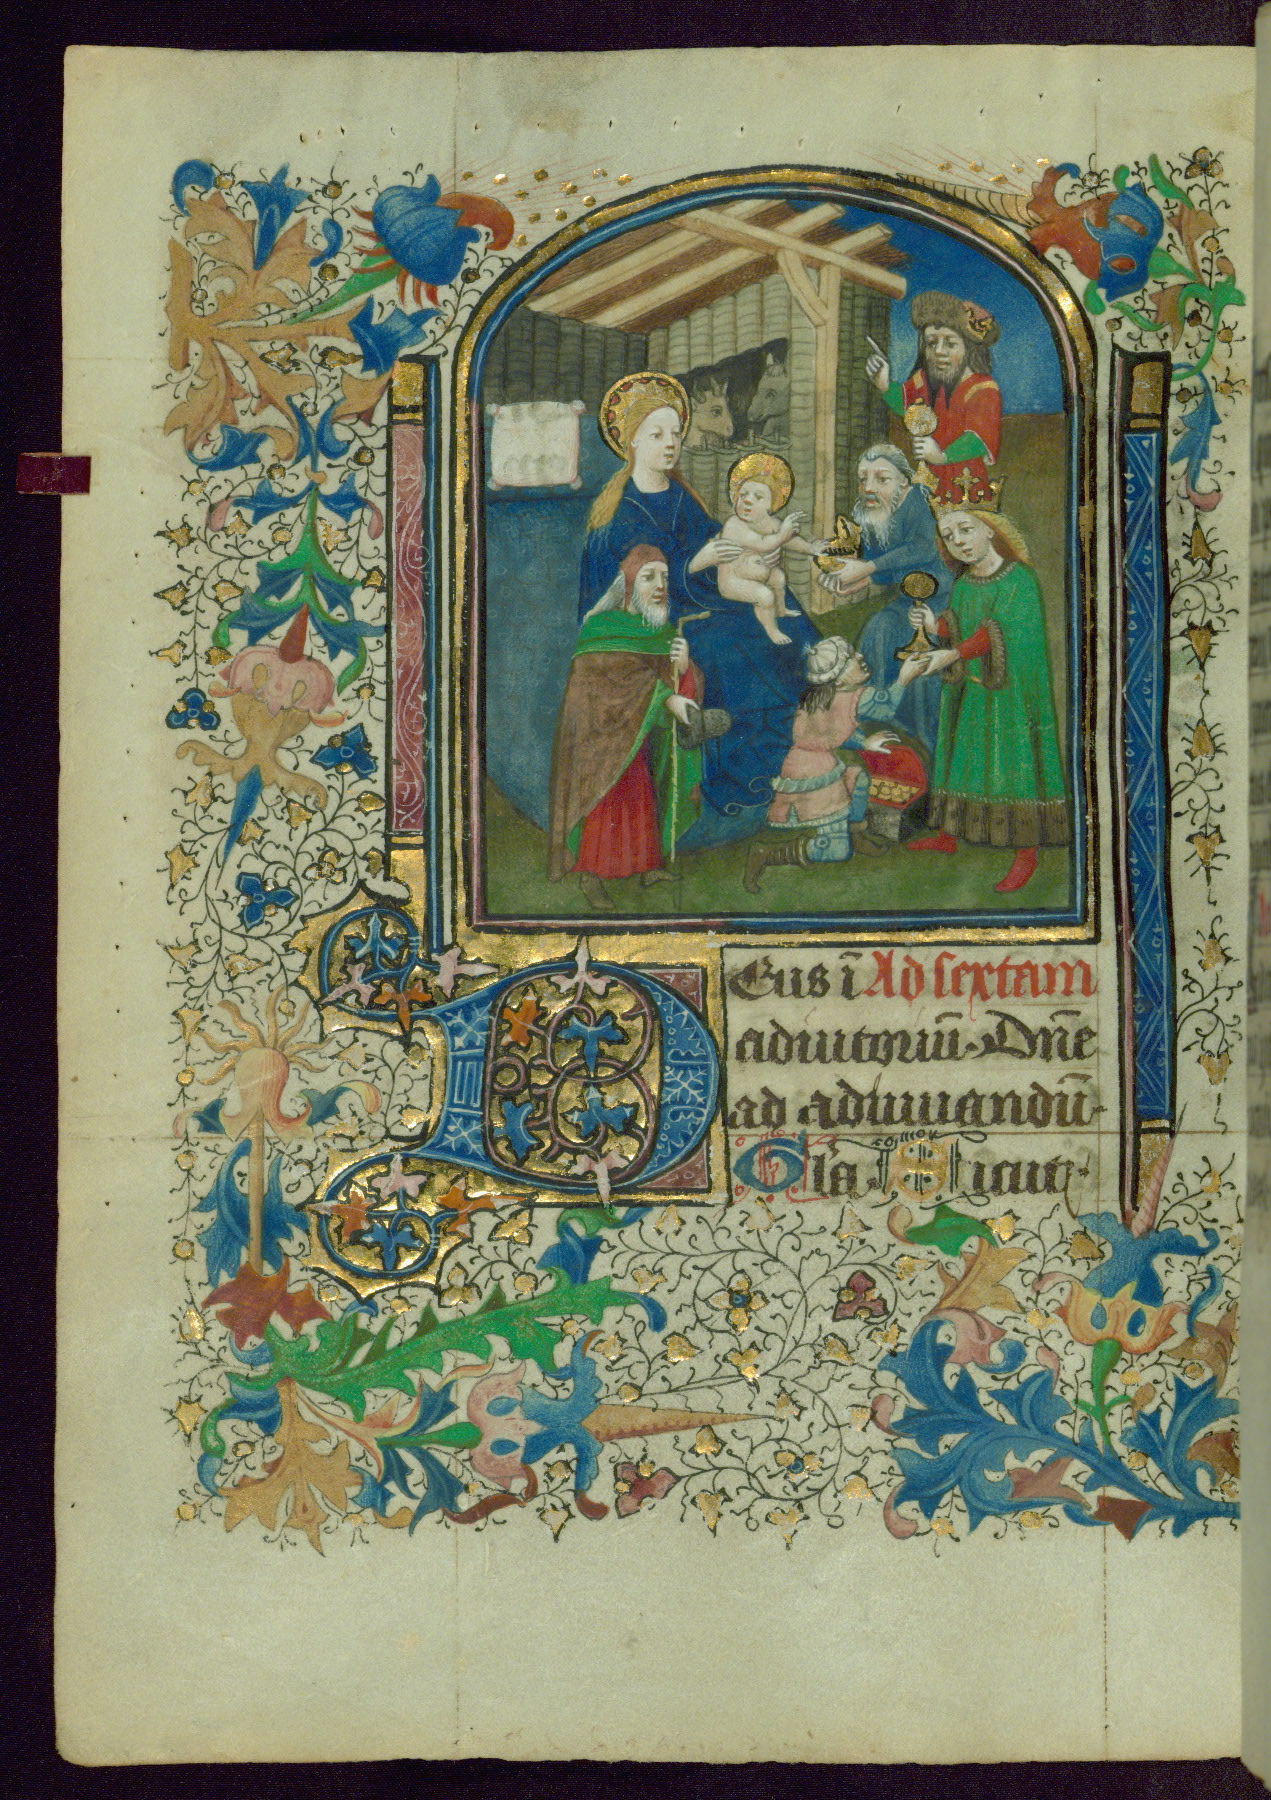 Deus ī Ad sextam
adiutoriū. Dn̄e
ad adiuuandū
Gl̄a Sicut.